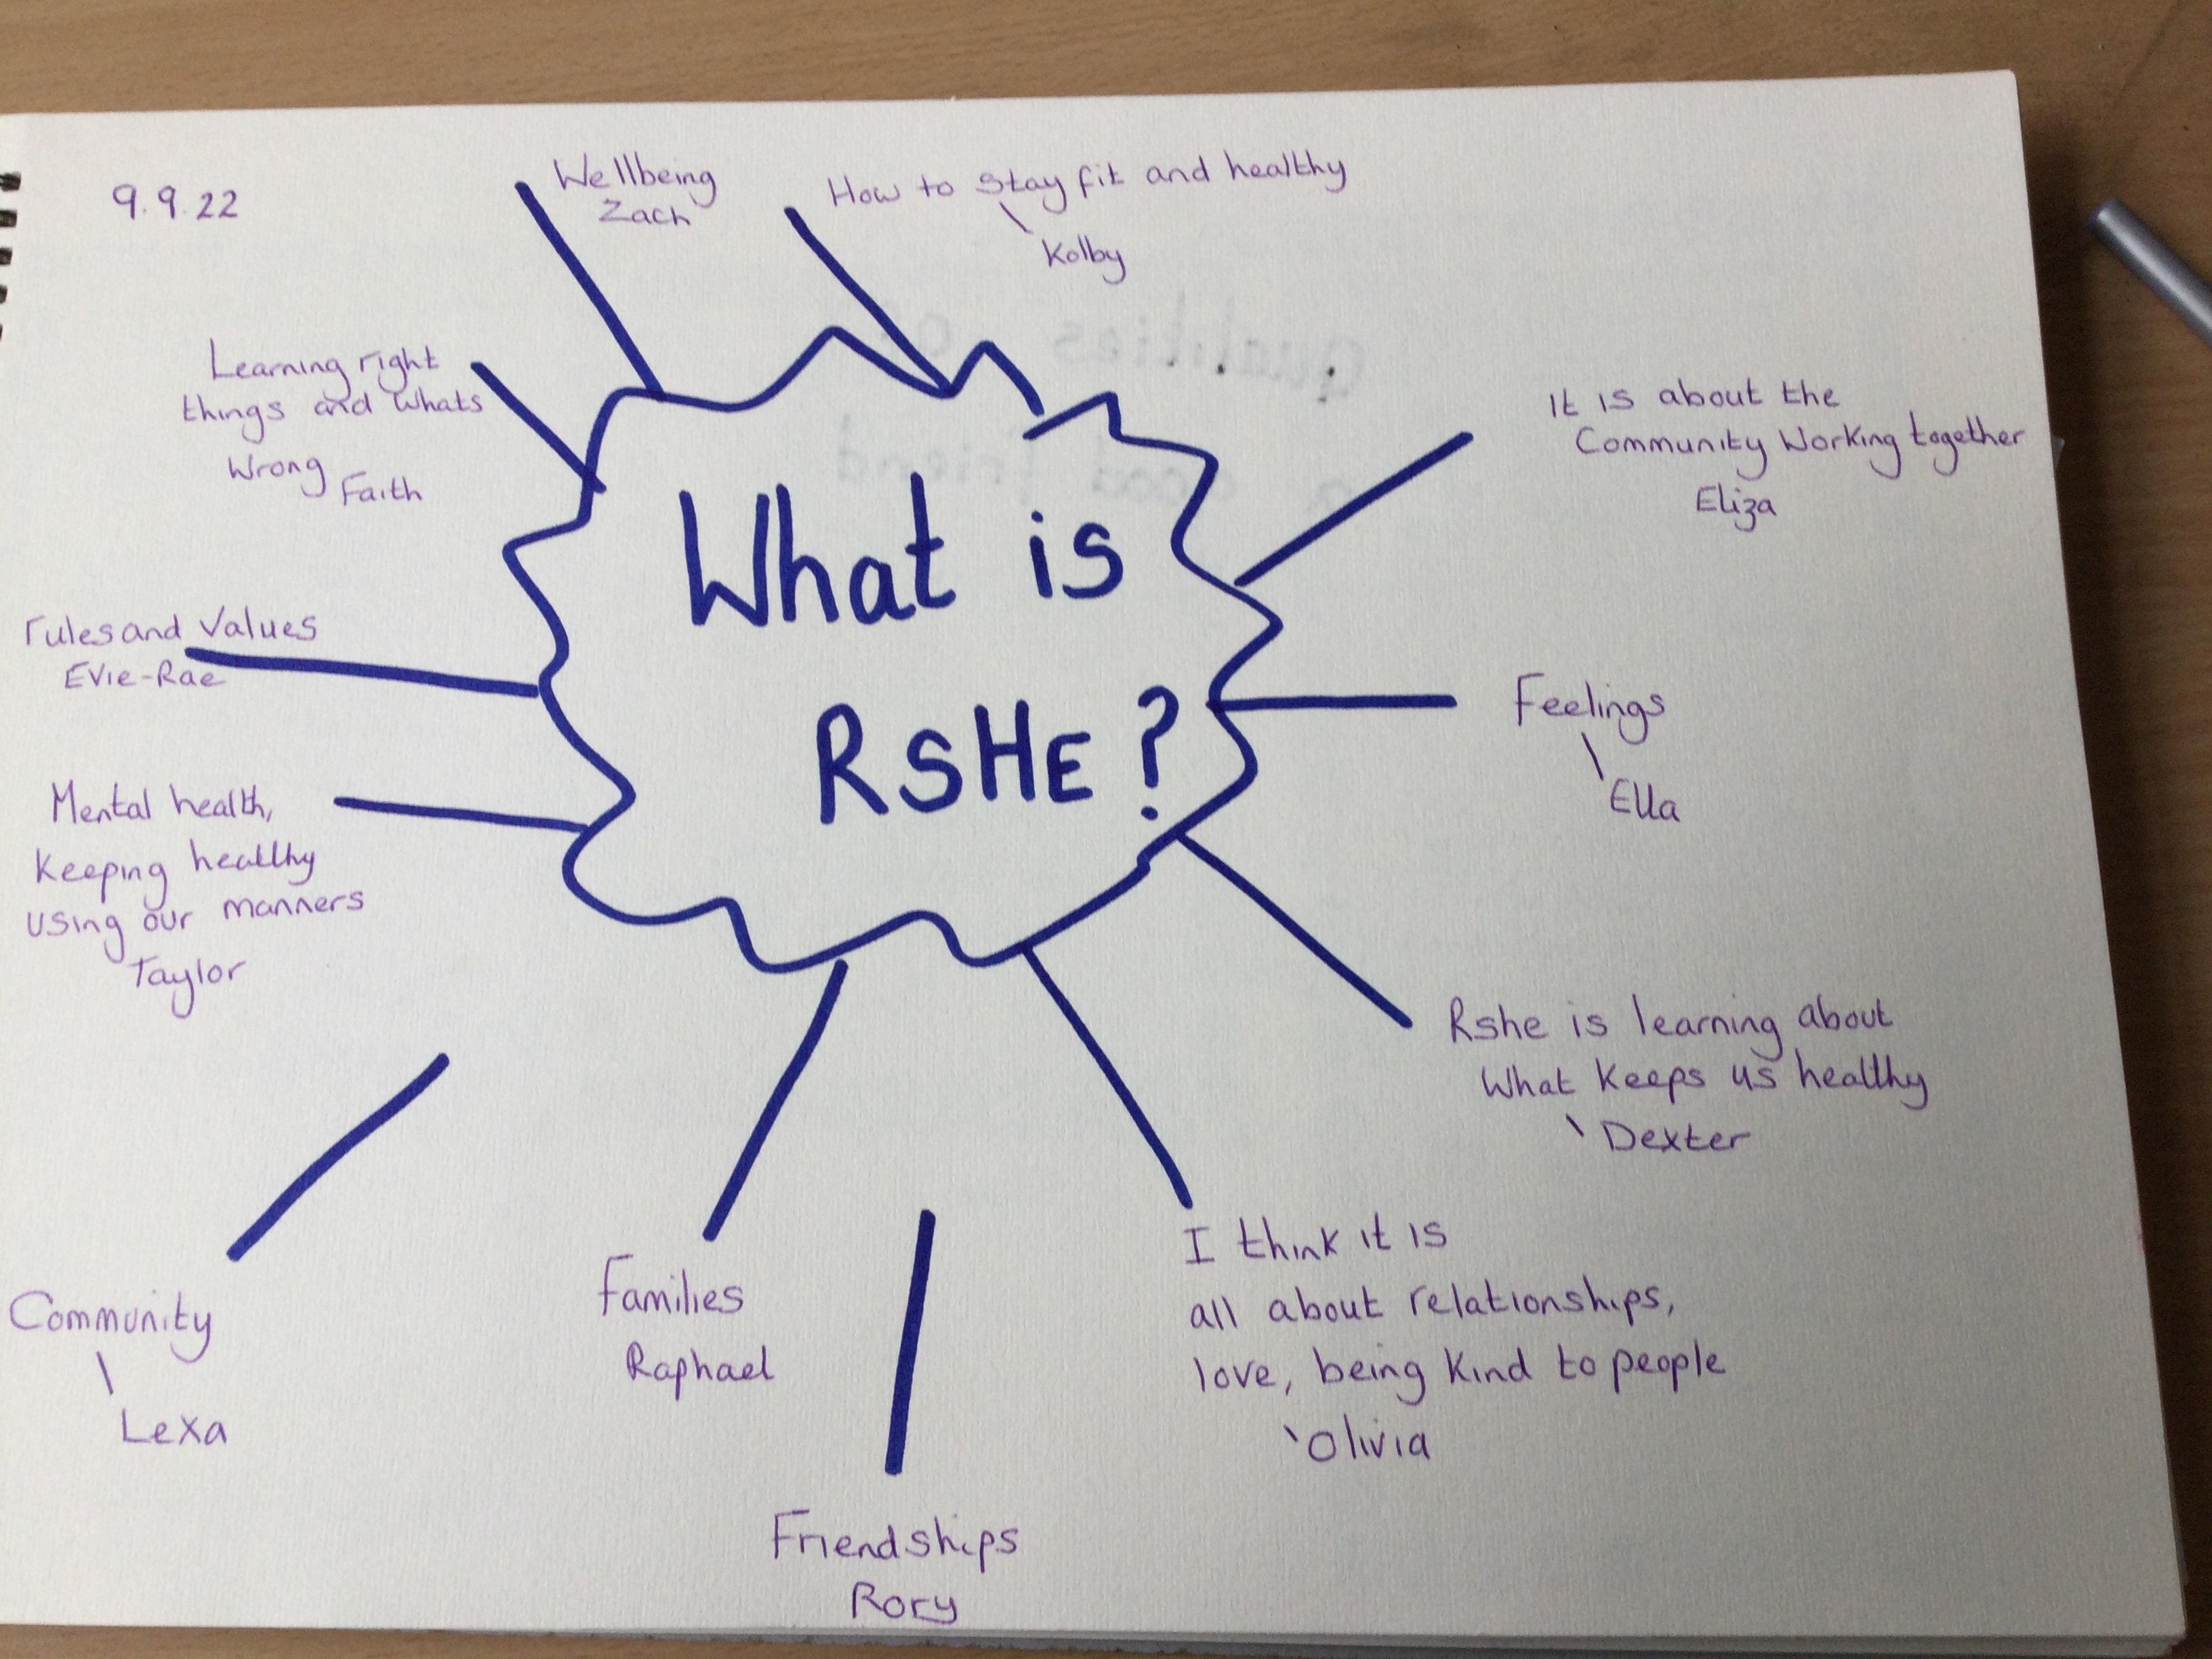 9.9.22
Wellbeing
Zach
How to stay fit and healthy
Kolby
Learning right
things and whats
Wrong
Faith
rules and values
Evie-Rae
Mental health,
Keeping healthy
using our manners
Taylor
Community
Lexa
What is
RSHE?
It is about the
Community Working together
Eliza
Feelings
Ella
Rshe is learning about
What keeps us healthy
Dexter
I think it is
all about relationships,
love, being kind to people
Olivia
Families
Raphael
Friendships
Rory
Qualities of
a good friend